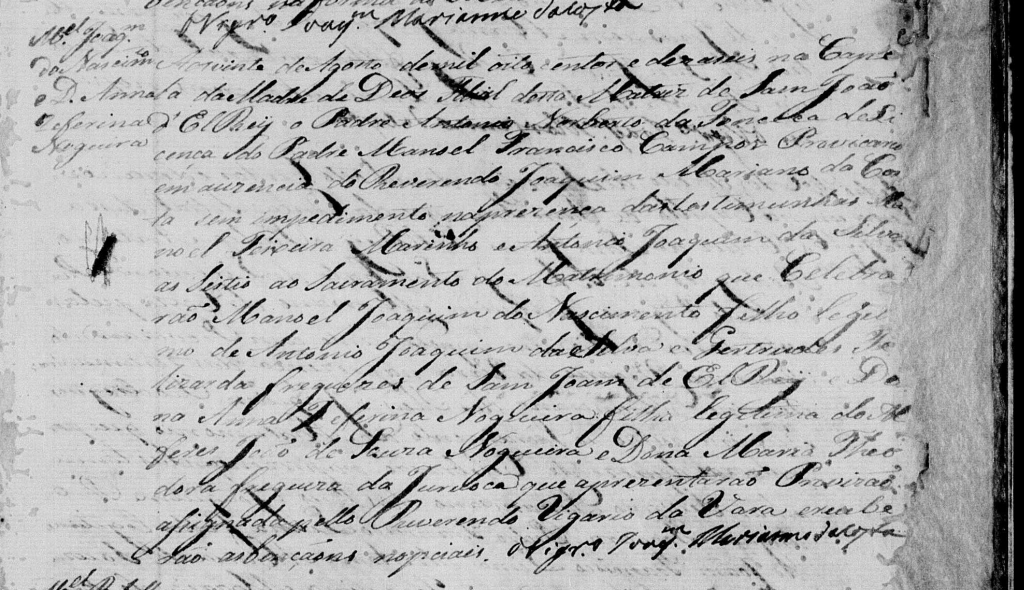 O Vigr.o Joaq.m Marianno da Costa
M.el Joaq.m
do Nascim.to
e D. Anna
Zeferina
Nogueira
Aos vinte de Agosto de mil oito centos e dezaseis na Cape
la da Madre de Deos Filial desta Matriz de Sam João
d'El Rey o Padre Antonio Norberto da de Li
cenca do Padre Manoel Francisco Campos
em auzencia do Reverendo Joaquim Mariano da Cos
ta sem impedimento na prezenca das testemunhas Ma
noel Teixeira Marinho e Antonio Joaquim da Silva
asestio ao Sacramento do Matrimonio que Celebra
rão Manoel Joaquim do Nascimento Filho legiti
mo de Antonio Joaquim da Silva e Gertrudes Fe
lizarda freguezes de Sam Joam de El Rey e Do
na Anna Zeferina Nogueira filha legitima do Al
feres João de Souza Nogueira e Dona Maria Theo
dora fregueza da Juruoca que aprezentarão Provizão
assignada pello Reverendo Vigario da Vara e recebe
rão as bencaons nopciais. O Vigr.o Joaq.m Marianno da Costa